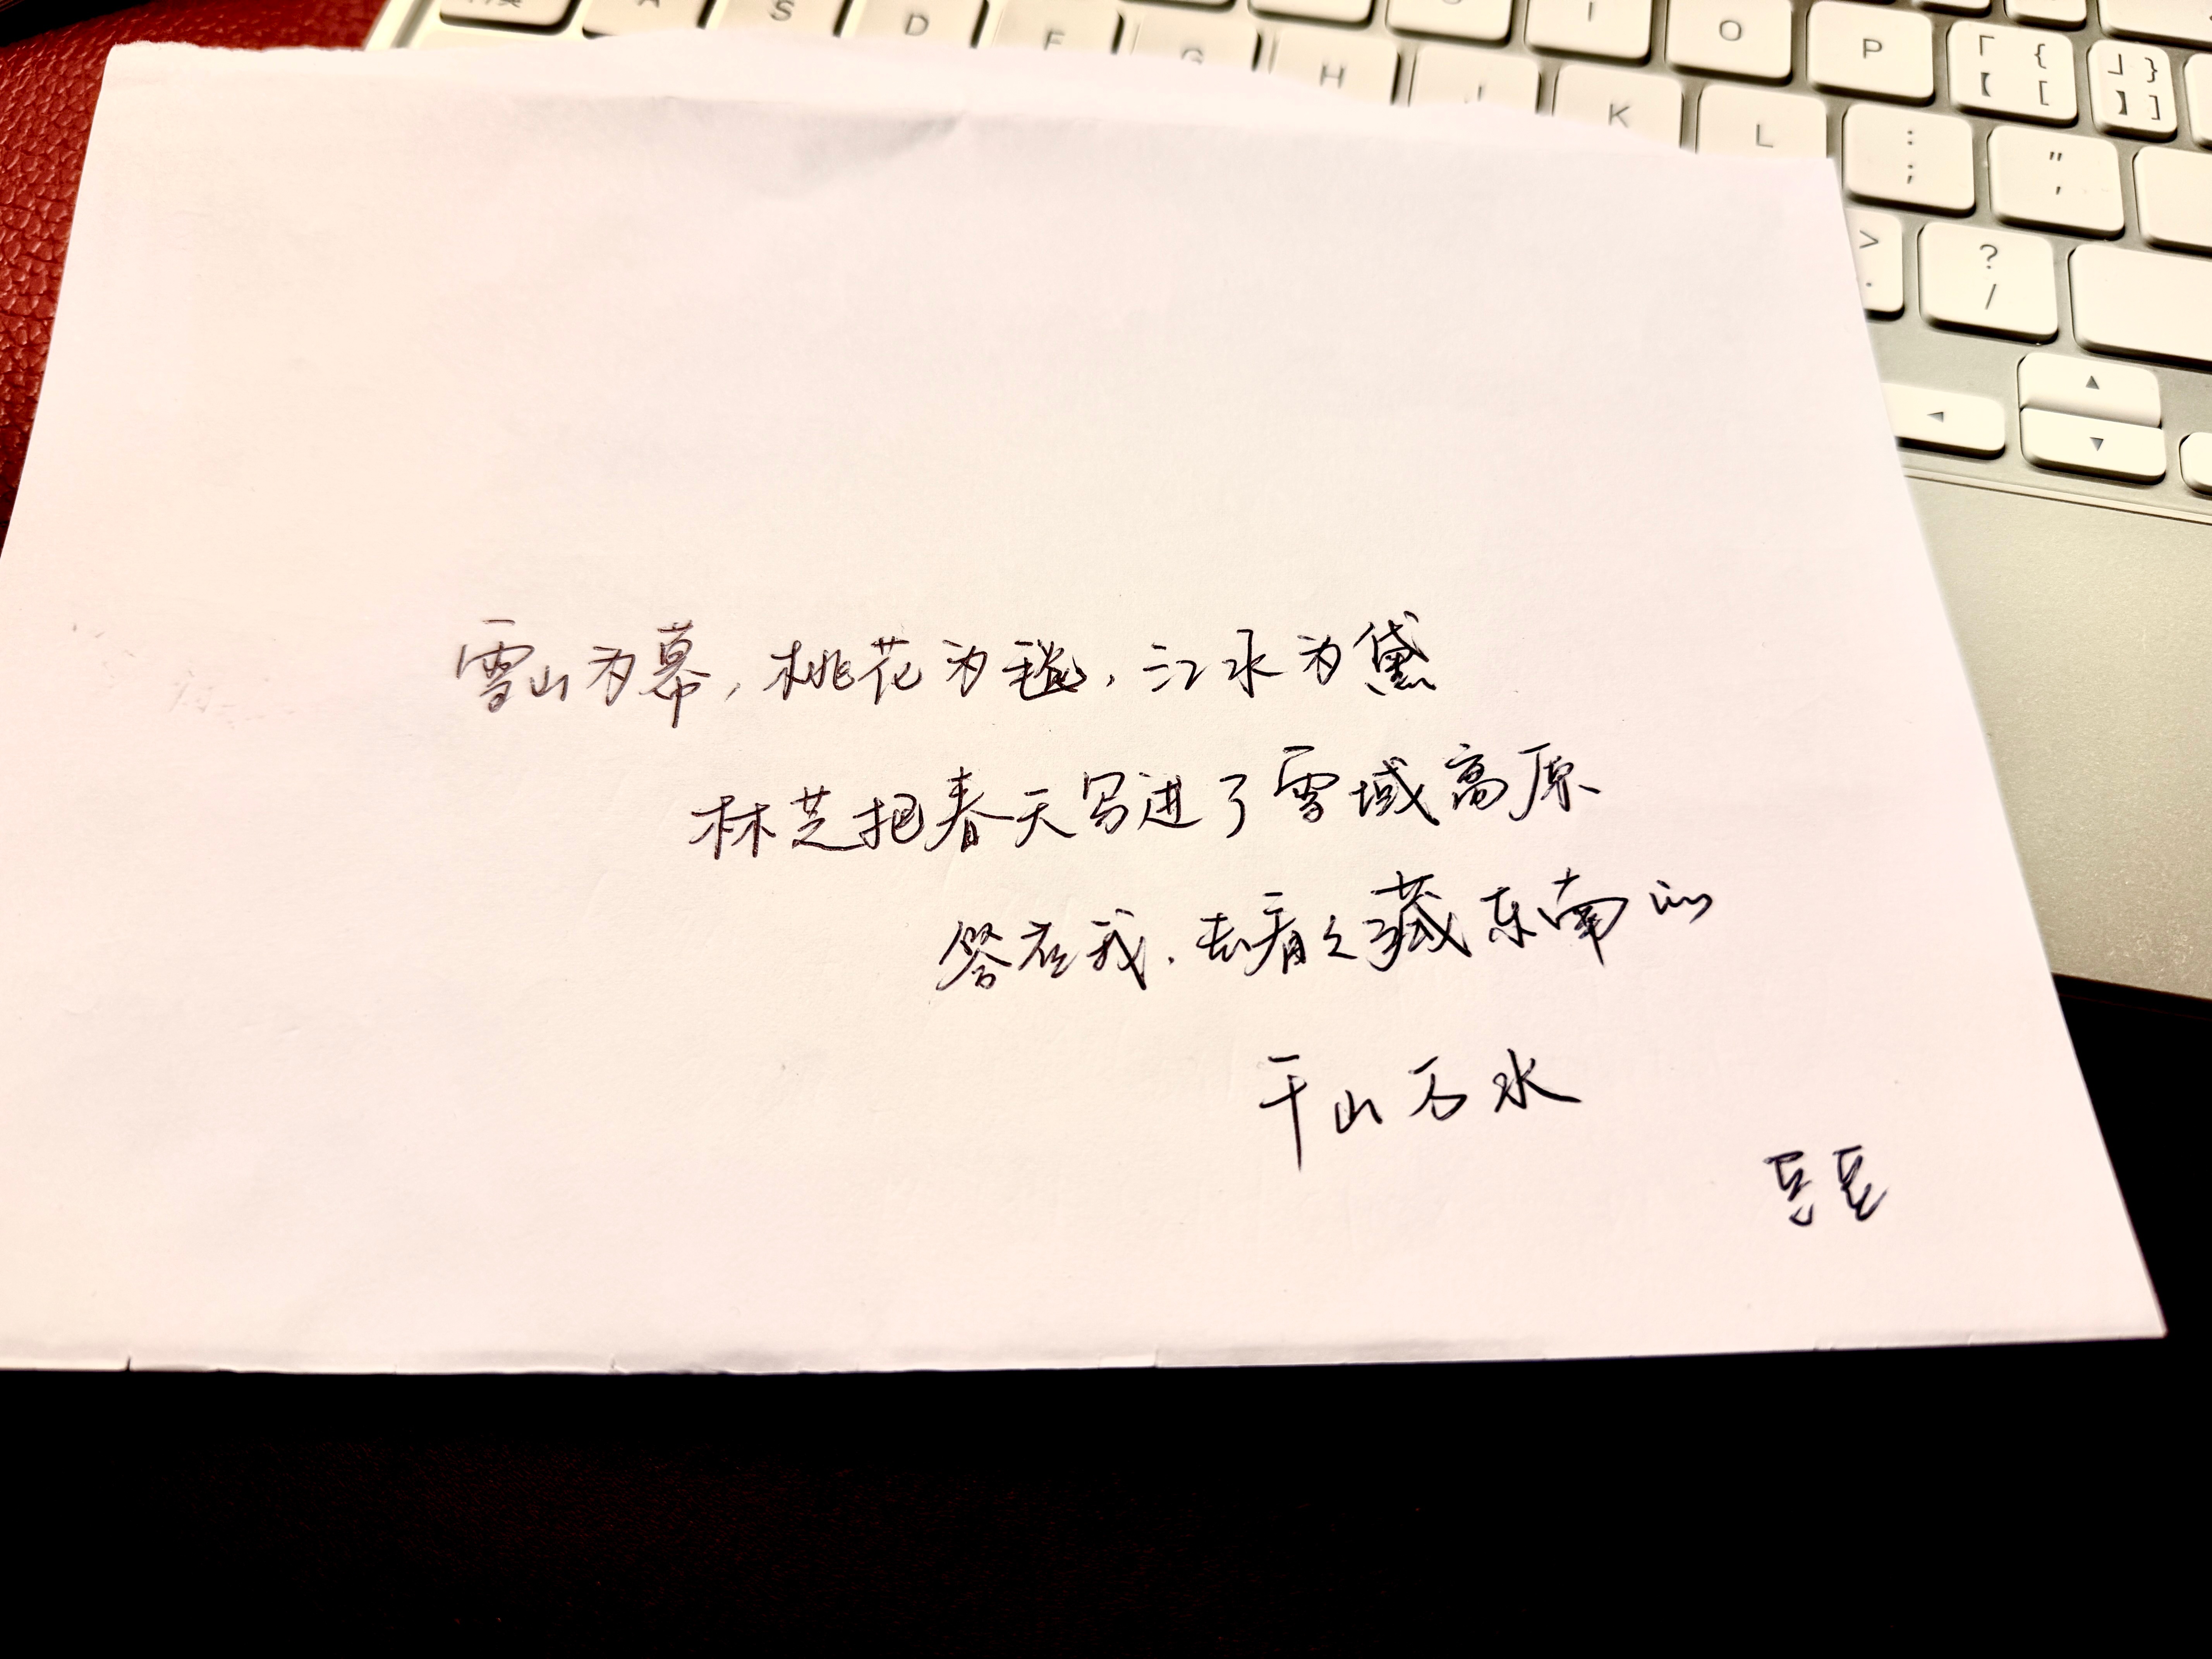 A S D F G H J K L I O P 「 { 【 [ 」 } 】 ]
: ; " ' > . ? /
雪山为幕，桃花为毯，江水为黛
林芝把春天写进了雪域高原
答应我，去看看藏东南的
千山万水
豆豆